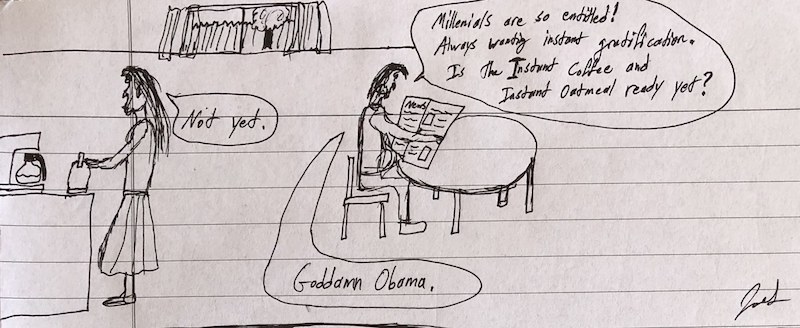 Millenials are so entitled!
Always wanting instant gratification.
Is The Instant Coffee and
Instant Oatmeal ready yet?
News
Not yet.
Goddamn Obama.